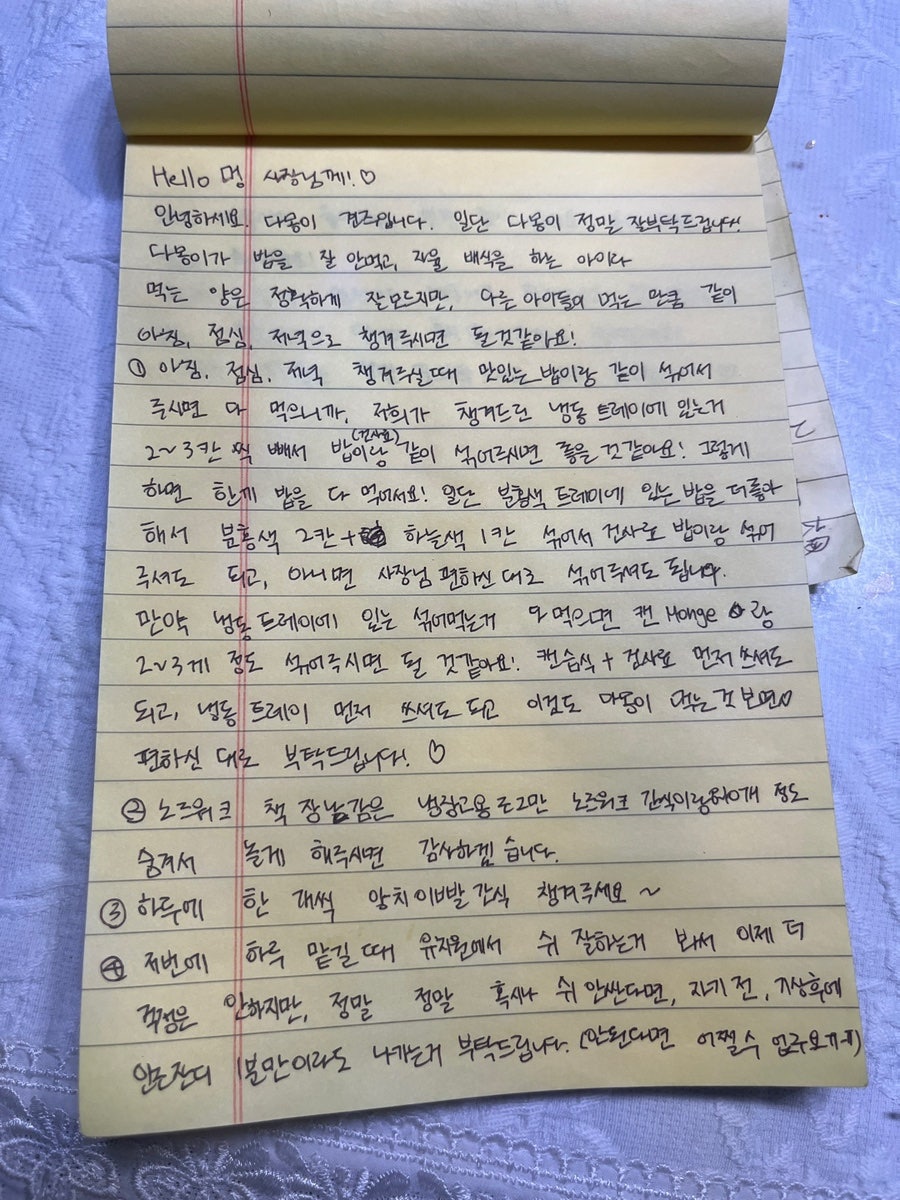 Hello 멍 사장님께! ♡
안녕하세요. 다몽이 견주입니다. 일단 다몽이 정말 잘부탁드립니다!
다몽이가 밥을 잘 안먹고, 자율 배식을 하는 아이라
먹는 양은 정확하게 잘모르지만, 다른 아이들이 먹는 만큼 같이
아침, 점심, 저녁으로 챙겨주시면 될것같아요!
① 아침, 점심, 저녁 챙겨주실때 맛있는 밥이랑 같이 섞어서
주시면 다 먹으니까, 저희가 챙겨드린 냉동 트레이에 있는거
2~3칸 씩 빼서 밥(건사료)이랑 같이 섞어주시면 좋을 것 같아요! 그렇게
하면 한게 밥을 다 먹어서요! 일단 분홍색 트레이에 있는 밥을 더좋아
해서 분홍색 2칸 + 하늘색 1칸 섞어서 건사료 밥이랑 섞어
주셔도 되고, 아니면 사장님 편하신 대로 섞어주셔도 됩니다.
만약 냉동 트레이에 있는 섞어먹는게 다 먹으면 캔 Monge 랑
2~3게 정도 섞어주시면 될 것같아요! 캔습식 + 건사료 먼저 쓰셔도
되고, 냉동 트레이 먼저 쓰셔도 되고 이것도 다몽이 먹는것 보면서
편하신 대로 부탁드립니다! ♡
② 노즈워크 책 장난감은 노즈워크 간식이랑 정도
숨겨서 놀게 해주시면 감사하겠습니다.
③ 하루에 한 개씩 양치 이빨 간식 챙겨주세요 ~
④ 저번에 하루 맡길 때 유치원에서 쉬 잘하는거 봐서 이제 더
걱정은 안하지만, 정말 정말 혹시나 쉬 안싼다면, 자기 전, 기상후에
1분만이라도 나가는거 부탁드립니다. (안된다면 어쩔수 없구요ㅠㅠ)